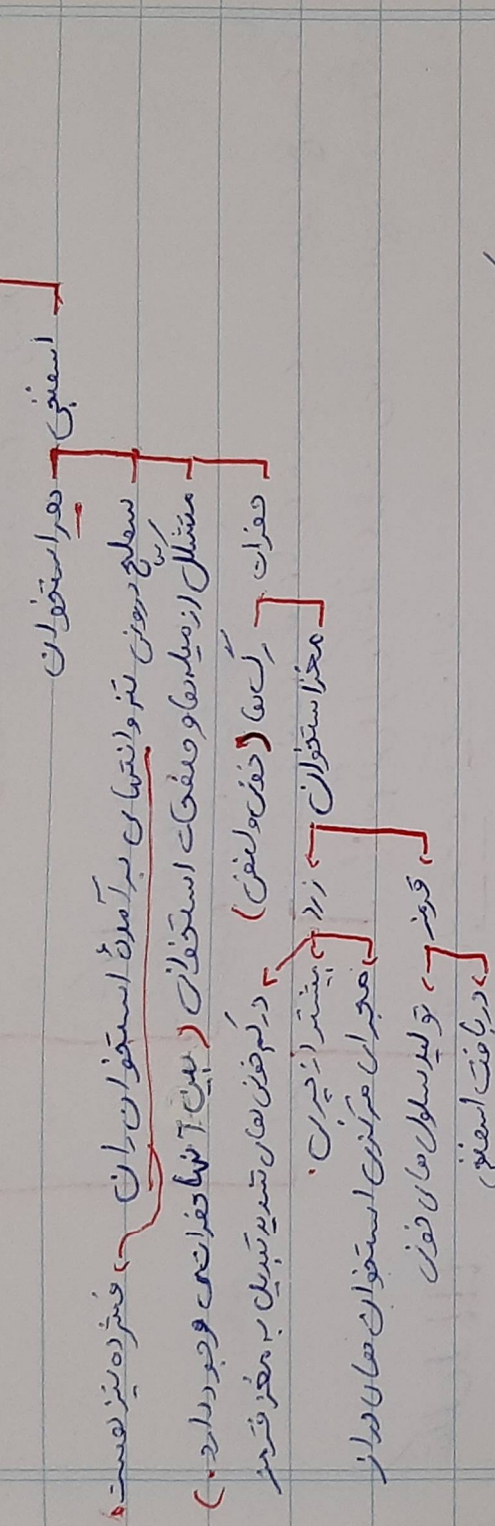 اسفنجی
هر استخوان
سطح درونی تنه و انتهای برآمدهٔ استخوان ران ← فشرده نیز هست.
متشکل از میله‌ها و صفحات استخوانی (بین آنها حفراتی وجود دارد.)
حفرات
رگ‌ها (خونی و لنفی)
مغز استخوان
زرد
در کم خونی های شدید تبدیل به مغز قرمز
بیشتر از چربی.
مجرای مرکزی استخوان های دراز
قرمز
تولید سلول های خونی
در بافت اسفنجی